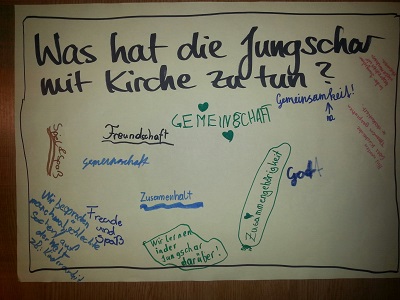 Was hat die Jungschar
mit Kirche zu tun?
Gemeinsamkeit!
GEMEINSCHAFT
Freundschaft
Spiel & Spaß
gemeinschaft
Zusammenhalt
Zusammengehörigkeit
Gott
Freude
und
Spaß
Wir besprechen
auch
schlechte
Sachen auf
der Welt
z.B.
Wir lernen
in der
Jungschar
darüber!